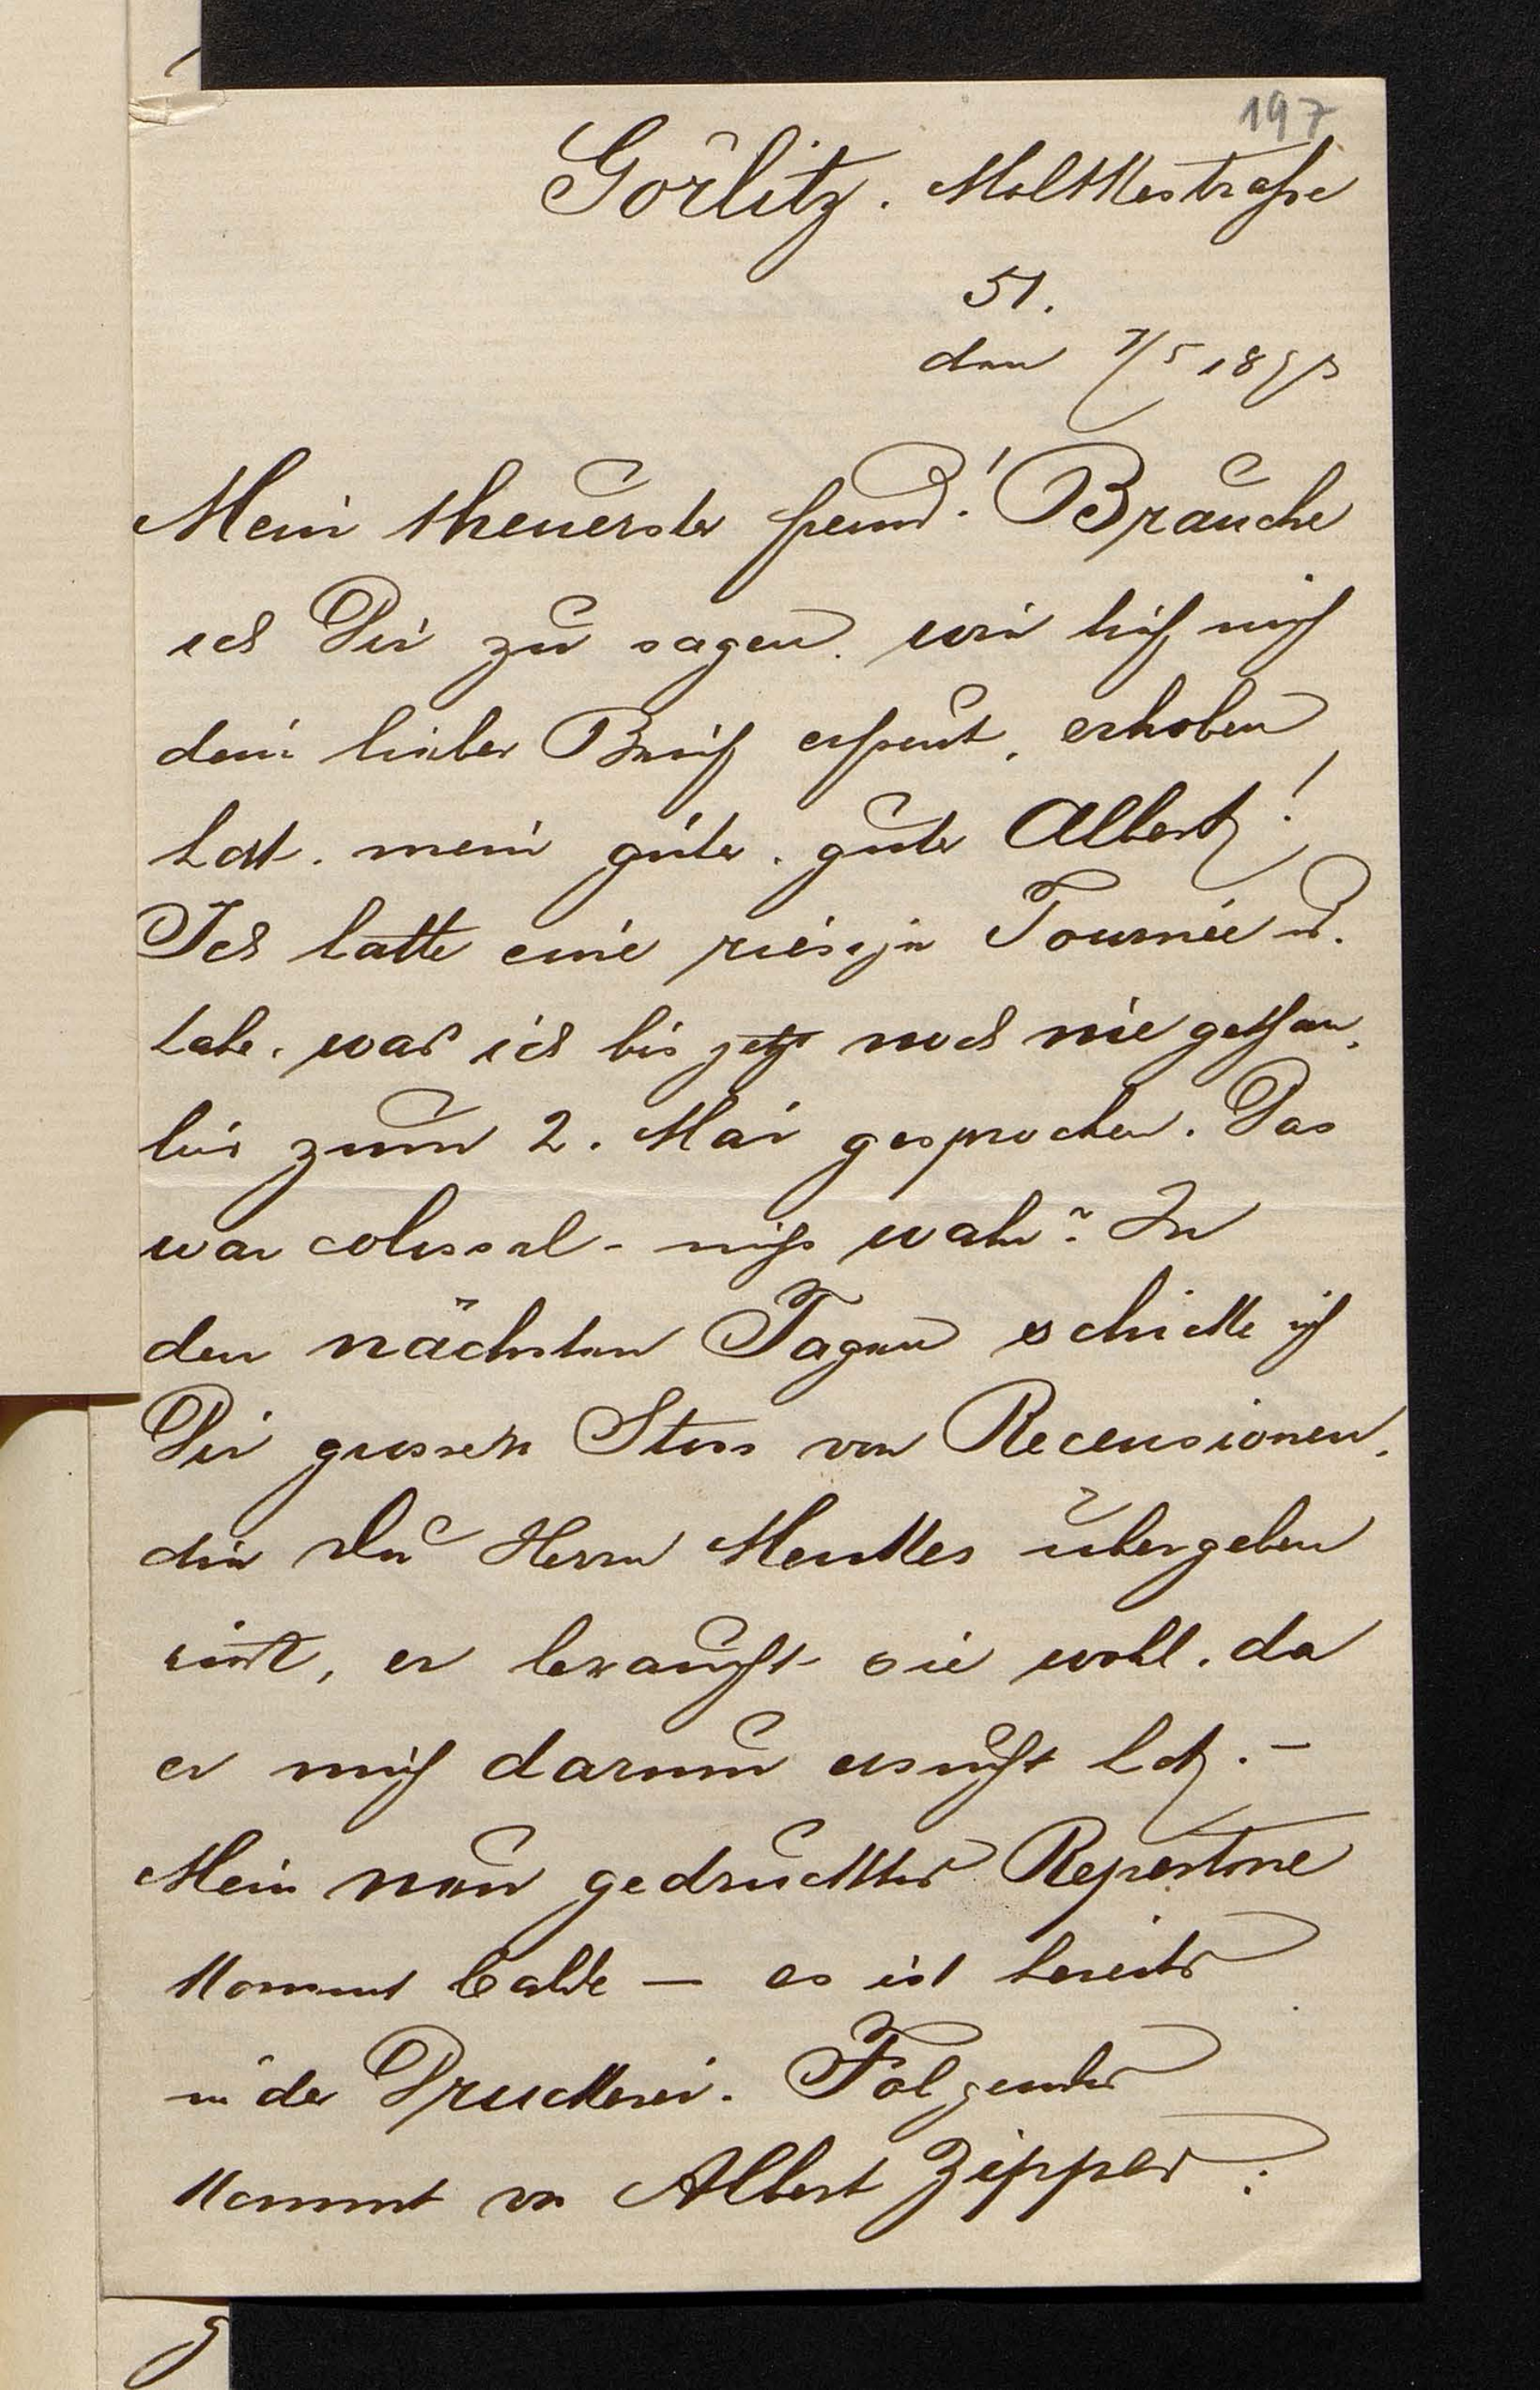 197
Görlitz. Moltkestraße
51.
den 7/5 189
Mein theuerster Freund! Brauche
ich Dir zu sagen, wie tief mich
dein lieber Brief erfreut, erhoben
hat, mein guter, guter Albert!
Ich hatte eine riesige Tournée u.
habe, was ich bis jetzt noch nie gethan,
bis zum 2. Mai gesprochen. Das
war colossal - nicht wahr? In
den nächsten Tagen schicke ich
Dir grossen Stoss von Recensionen,
die Du Herrn Menkes übergeben
wirst, er braucht sie wohl, da
er mich darum ersucht hat. -
Mein neu gedrucktes Repertoire
kommt balde — es ist bereits
in der Druckerei. Folgendes
kommt von Albert Zipper: